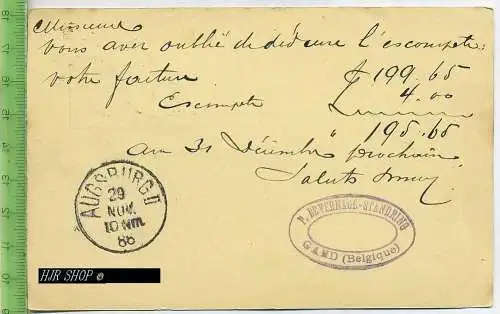 Messieurs
vous avez oublié de déduire l'escompte:
votre facture £ 199.65
Escompte 4.00
195.65
au 31 Décembre prochain
Saluts
AUGSBURG II
29
NOV.
10 Nm.
86
P. DEVERNAGE-STANDRING
GAND (Belgique)
HJR SHOP ©